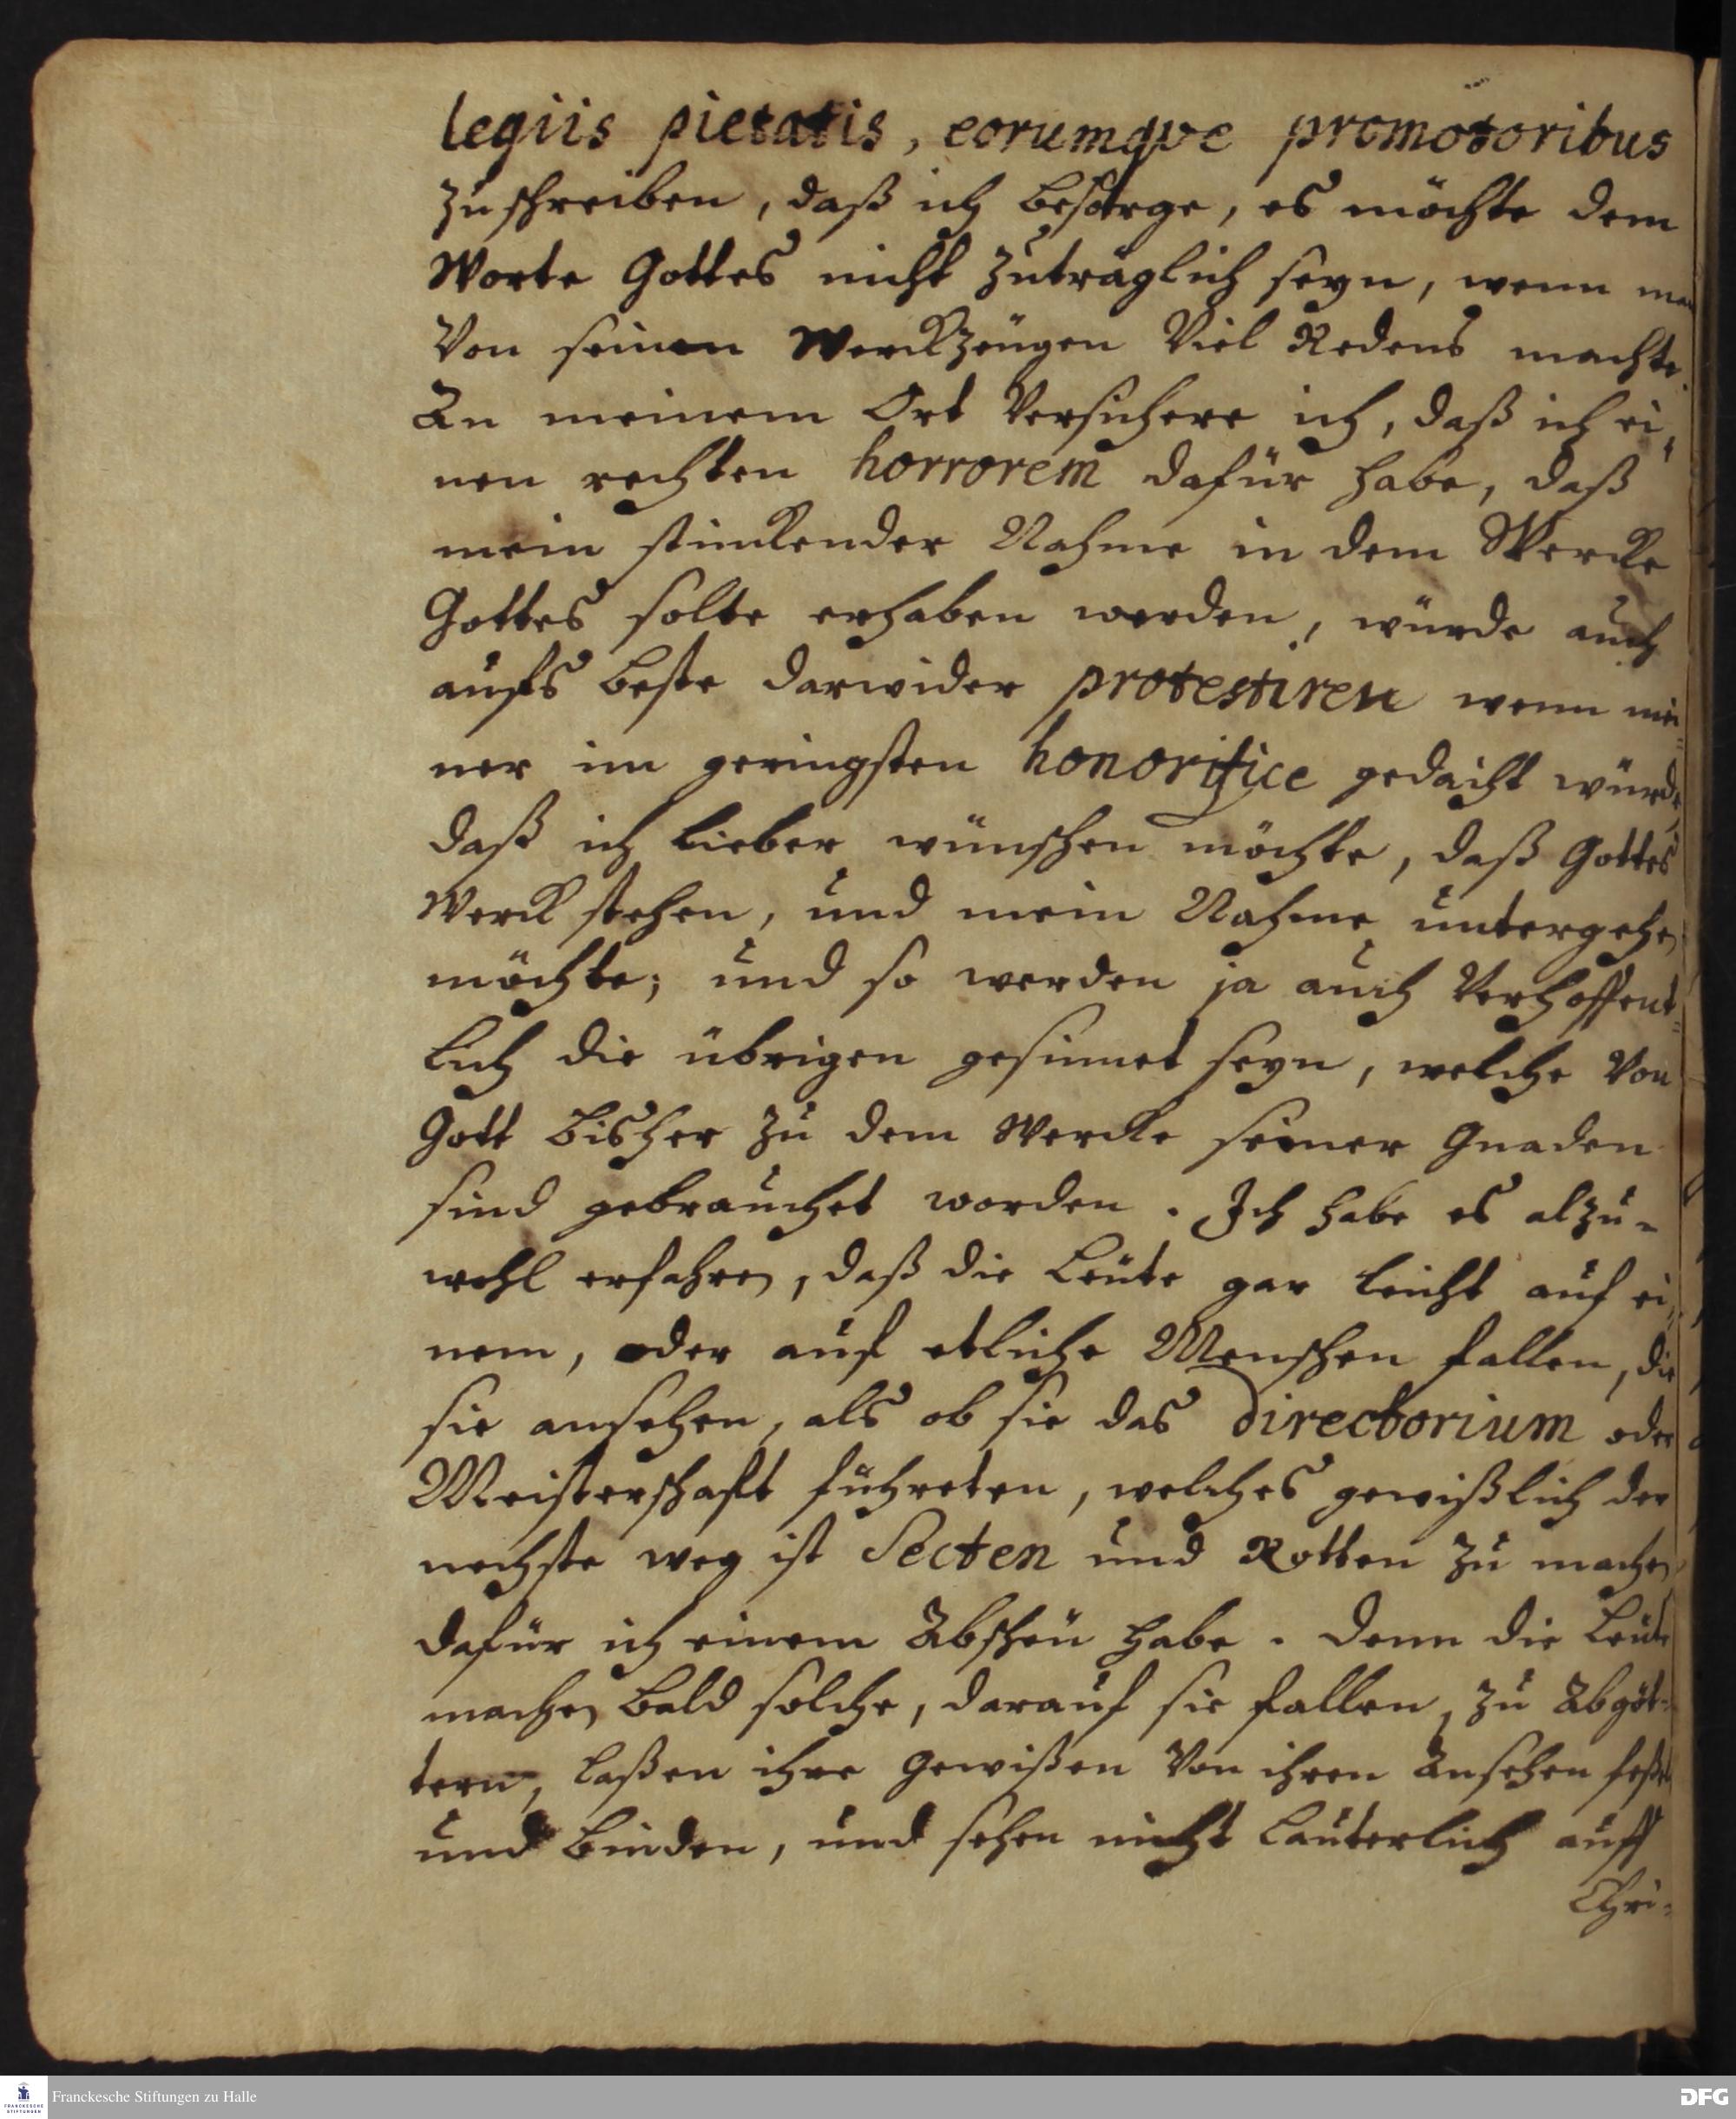 legiis pietatis, eorumqve promotoribus
zu schreiben, daß ich besorge, es möchte dem
Worte Gottes nicht zuträglich seyn, wenn man
Von seinen Werckzeugen Viel Redens machte.
An meinem Ort Versichere ich, daß ich ei-
nen rechten horrorem dafür habe, daß
mein stinckender Nahme in dem Wercke
Gottes solte erhaben werden, würde auch
aufs beste darwider protestiren wenn mei-
ner im geringsten honorifice gedacht würde,
daß ich lieber wünschen möchte, daß Gottes
Werck stehen, und mein Nahme untergehen
möchte; und so werden ja auch Verhoffent-
lich die übrigen gesinnet seyn, welche Von
Gott bisher zu dem Wercke seiner Gnaden
sind gebrauchet worden. Ich habe es alzu-
wohl erfahren, daß die Leute gar leicht auf ei-
nem, oder auf etliche Menschen fallen, die
sie ansehen, als ob sie das directorium oder
Meisterschafft führeten, welches gewißlich der
nechste weg ist Secten und Rotten zu machen
dafür ich einem Abscheu habe. Denn die Leute
machen bald solche, darauf sie fallen, zu Abgöt-
tern, laßen ihre Gewißen Von ihren Ansehen feßeln
und binden, und sehen nicht lauterlich auff
Chri-
Franckesche Stiftungen zu Halle
FRANCKESCHE STIFTUNGEN
DFG